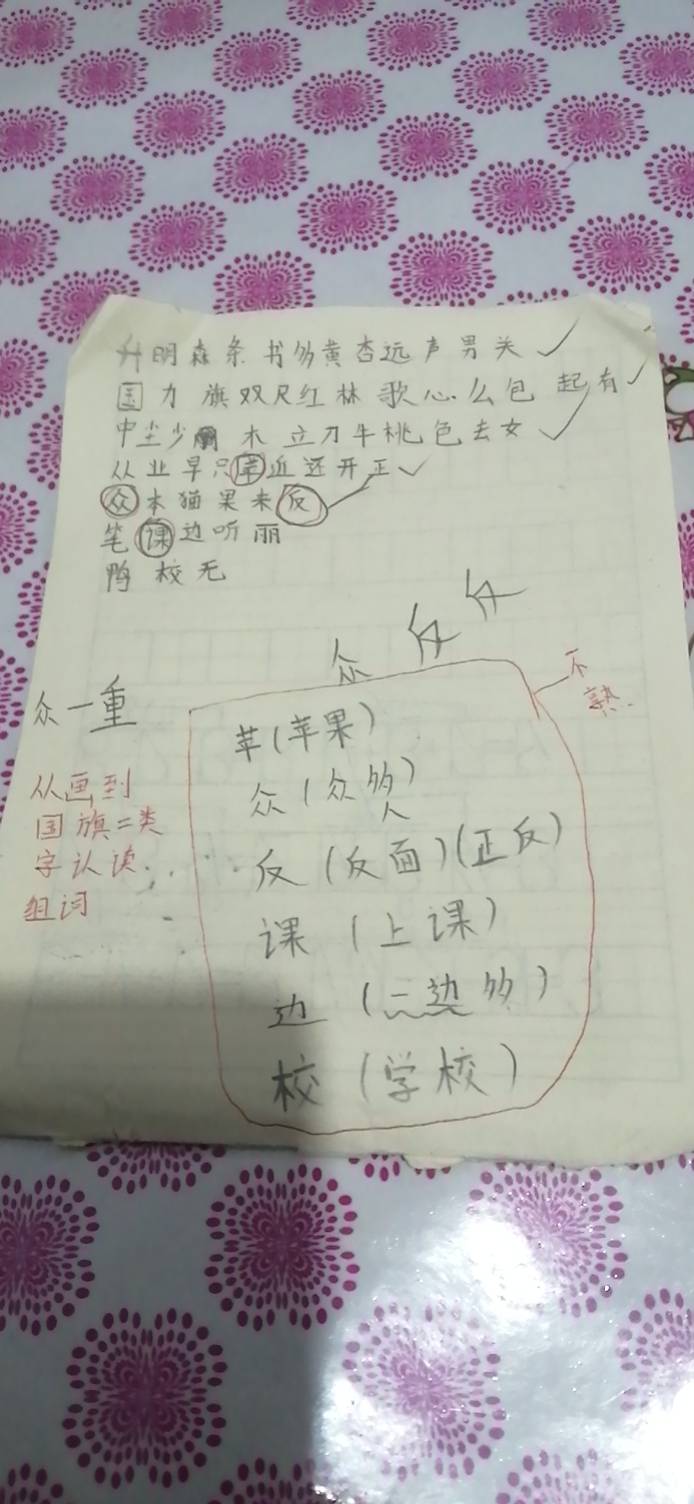 升明森条书多黄杏远声男关
国力旗双尺红林歌心么包起有
中尘少木立刀牛桃色去女
从业早只苹近还开正
众本猫果来反
笔课边听丽
鸭校无
众
众一重
不熟
苹(苹果)
众(众人)
从画到
国旗二类
字认读
组词
反(反面)(正反)
课(上课)
边(一边)
校(学校)